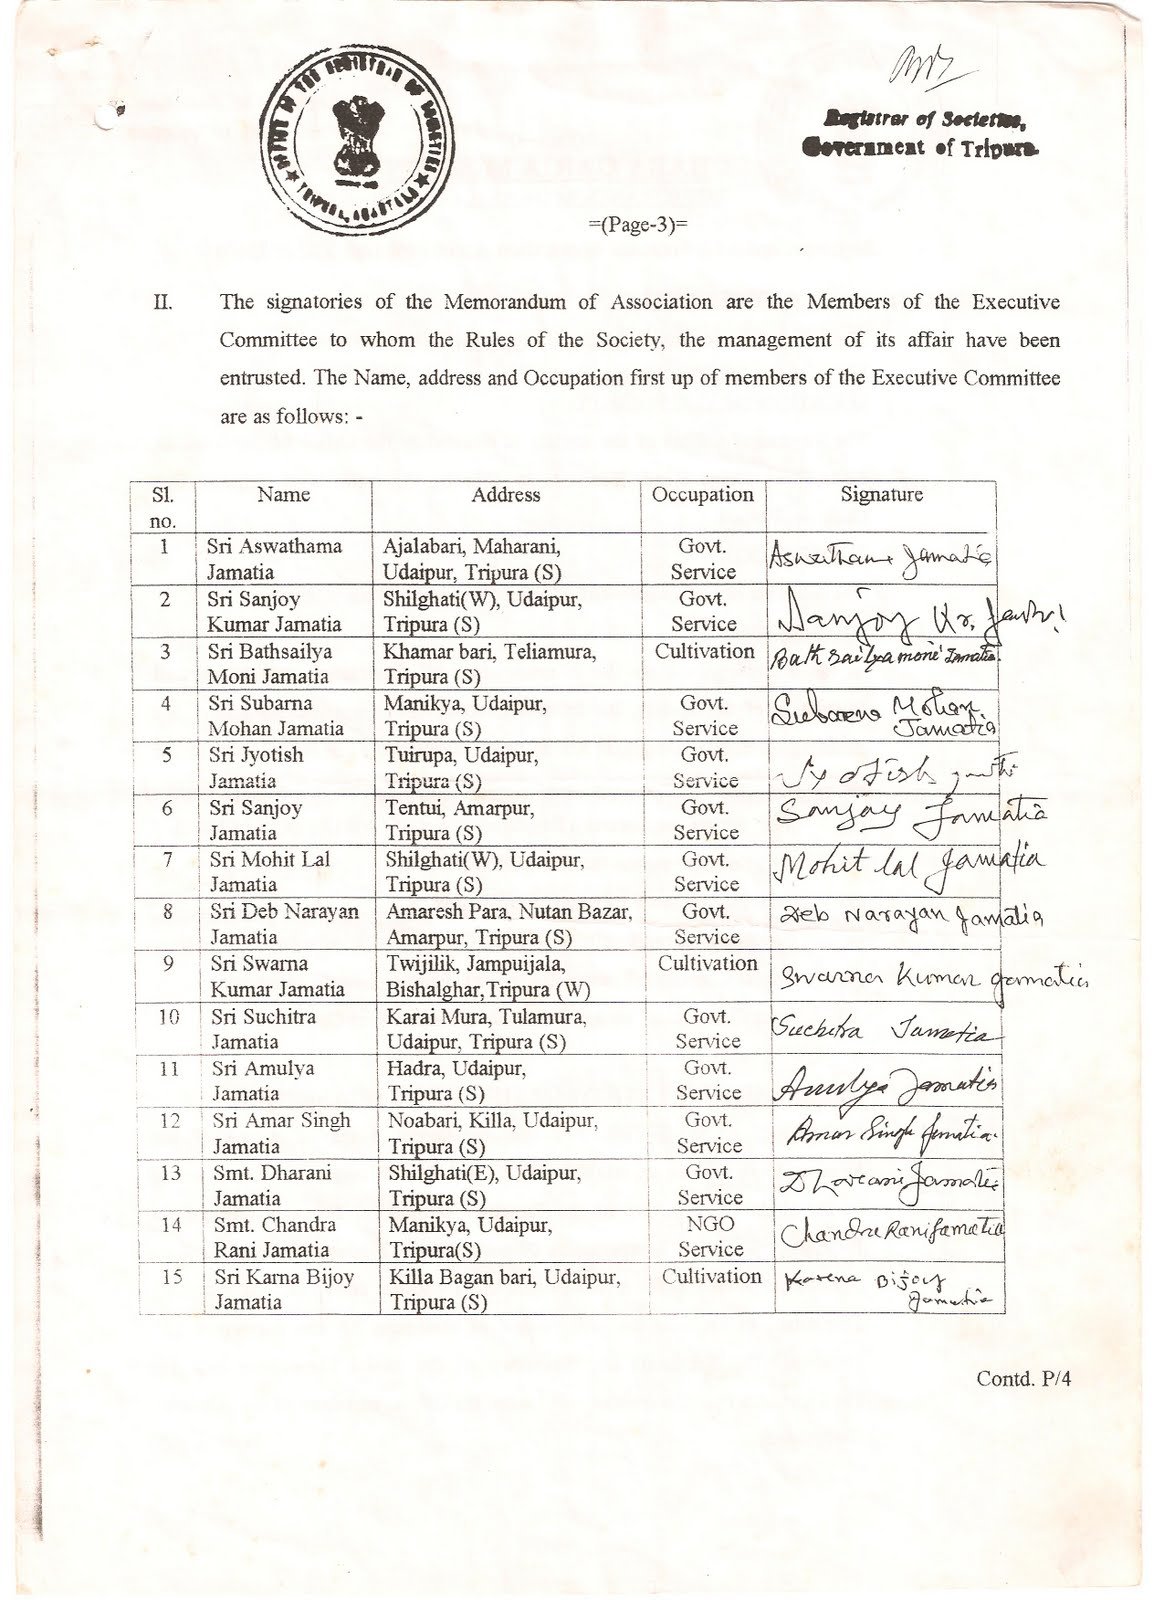 OFFICE OF THE REGISTRAR OF SOCIETIES
★ TRIPURA, AGARTALA ★
Registrar of Societies,
Government of Tripura.
=(Page-3)=
II. The signatories of the Memorandum of Association are the Members of the Executive
Committee to whom the Rules of the Society, the management of its affair have been
entrusted. The Name, address and Occupation first up of members of the Executive Committee
are as follows: -
Sl. Name Address Occupation Signature
no.
1 Sri Aswathama Ajalabari, Maharani, Govt. Aswathama Jamatia
Jamatia Udaipur, Tripura (S) Service
2 Sri Sanjoy Shilghati(W), Udaipur, Govt. Sanjoy Kr.
Kumar Jamatia Tripura (S) Service
3 Sri Bathsailya Khamar bari, Teliamura, Cultivation Bathsailyamoni Jamatia
Moni Jamatia Tripura (S)
4 Sri Subarna Manikya, Udaipur, Govt. Subarna Mohan
Mohan Jamatia Tripura (S) Service Jamatia
5 Sri Jyotish Tuirupa, Udaipur, Govt. Jyotish
Jamatia Tripura (S) Service
6 Sri Sanjoy Tentui, Amarpur, Govt. Sanjoy Jamatia
Jamatia Tripura (S) Service
7 Sri Mohit Lal Shilghati(W), Udaipur, Govt. Mohit lal Jamatia
Jamatia Tripura (S) Service
8 Sri Deb Narayan Amaresh Para, Nutan Bazar, Govt. Deb Narayan Jamatia
Jamatia Amarpur, Tripura (S) Service
9 Sri Swarna Twijilik, Jampuijala, Cultivation Swarna Kumar Jamatia
Kumar Jamatia Bishalghar,Tripura (W)
10 Sri Suchitra Karai Mura, Tulamura, Govt. Suchitra Jamatia
Jamatia Udaipur, Tripura (S) Service
11 Sri Amulya Hadra, Udaipur, Govt. Amulya Jamatia
Jamatia Tripura (S) Service
12 Sri Amar Singh Noabari, Killa, Udaipur, Govt. Amar Singh Jamatia.
Jamatia Tripura (S) Service
13 Smt. Dharani Shilghati(E), Udaipur, Govt. Dharani Jamatia
Jamatia Tripura (S) Service
14 Smt. Chandra Manikya, Udaipur, NGO Chandra Rani Jamatia
Rani Jamatia Tripura(S) Service
15 Sri Karna Bijoy Killa Bagan bari, Udaipur, Cultivation Karena Bijoy
Jamatia Tripura (S) Jamatia
Contd. P/4